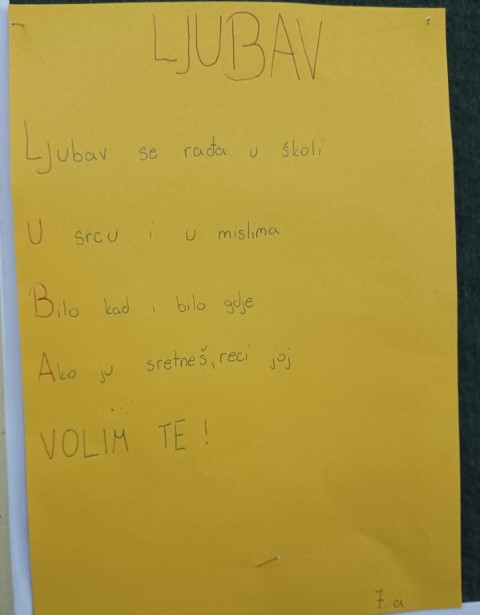 LJUBAV
Ljubav se rađa u školi
U srcu i u mislima
Bilo kad i bilo gdje
Ako ju sretneš, reci joj
VOLIM TE!
7. a